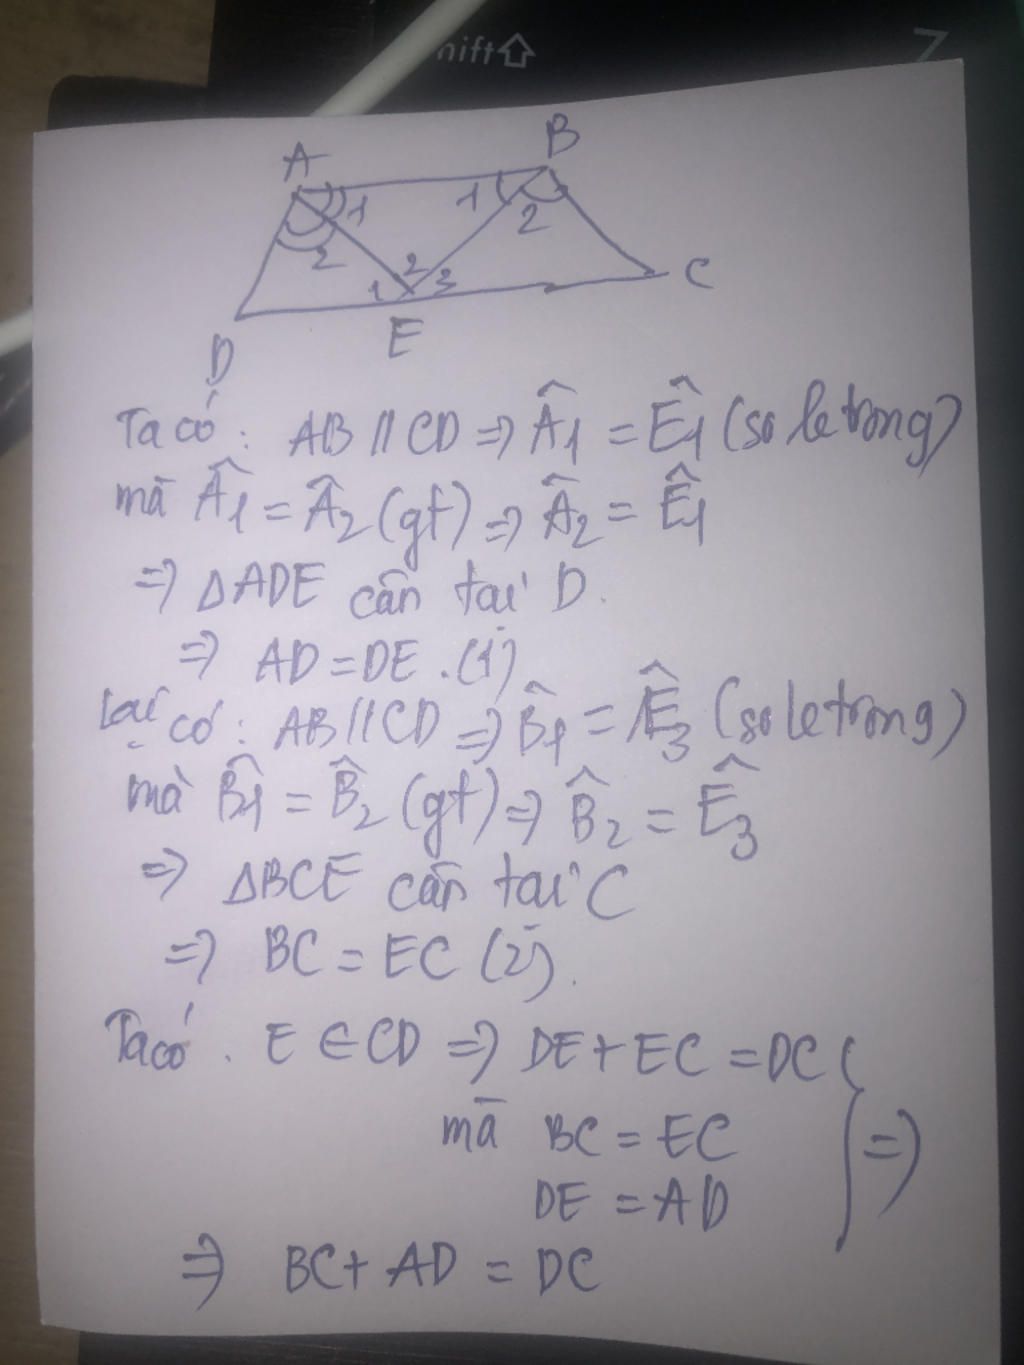 shift
7
A
B
1
1
2
2
2
1
3
C
D
E
Ta có: AB // CD => Â1 = Ê1 (so le trong)
mà Â1 = Â2 (gt) => Â2 = Ê1
=> ΔADE cân tại D.
=> AD = DE. (1)
Lại có: AB // CD => B̂1 = Ê3 (so le trong)
mà B̂1 = B̂2 (gt) => B̂2 = Ê3
=> ΔBCE cân tại C
=> BC = EC (2).
Ta có. E ∈ CD => DE + EC = DC
mà BC = EC
=>
DE = AD
=> BC + AD = DC